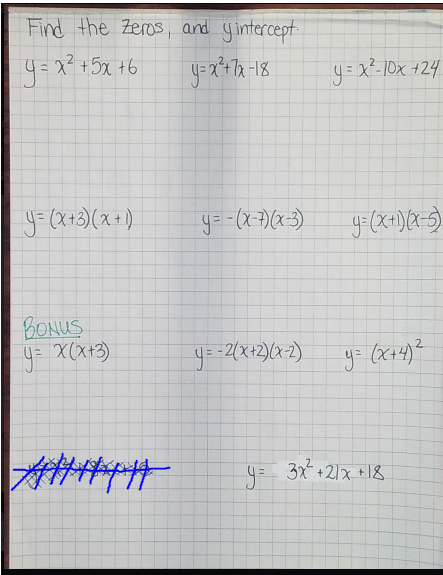 Find the zeros, and y intercept.
y = x² + 5x + 6 y = x² + 7x - 18 y = x² - 10x + 24
y = (x+3)(x+1) y = -(x-7)(x-3) y = (x+1)(x-5)
BONUS
y = x(x+3) y = -2(x+2)(x-2) y = (x+4)²
y = 3x² + 21x + 18